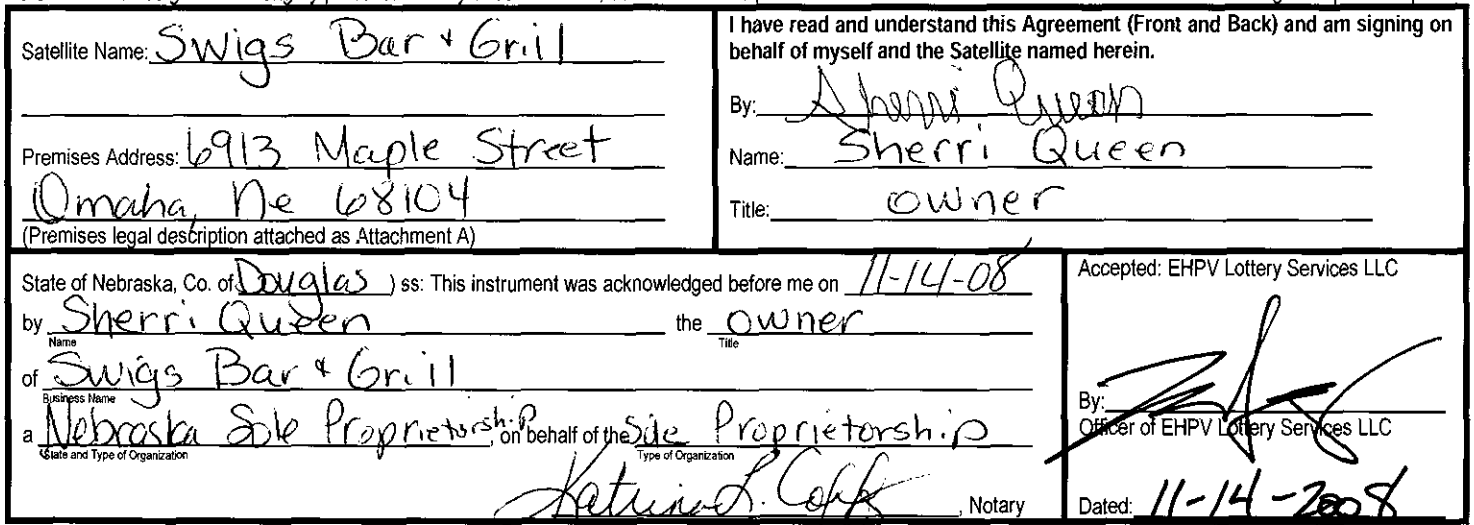 Satellite Name: Swigs Bar + Grill
Premises Address: 6913 Maple Street
Omaha, Ne 68104
(Premises legal description attached as Attachment A)
I have read and understand this Agreement (Front and Back) and am signing on
behalf of myself and the Satellite named herein.
By: Sherri Queen
Name: Sherri Queen
Title: owner
State of Nebraska, Co. of Douglas ) ss: This instrument was acknowledged before me on 11-14-08
by Sherri Queen the owner
Name Title
of Swigs Bar + Grill
Business Name
a Nebraska Sole Proprietorship, on behalf of the Sole Proprietorship
State and Type of Organization Type of Organization
Katrina L. , Notary
Accepted: EHPV Lottery Services LLC
By:
Officer of EHPV Lottery Services LLC
Dated: 11-14-2008